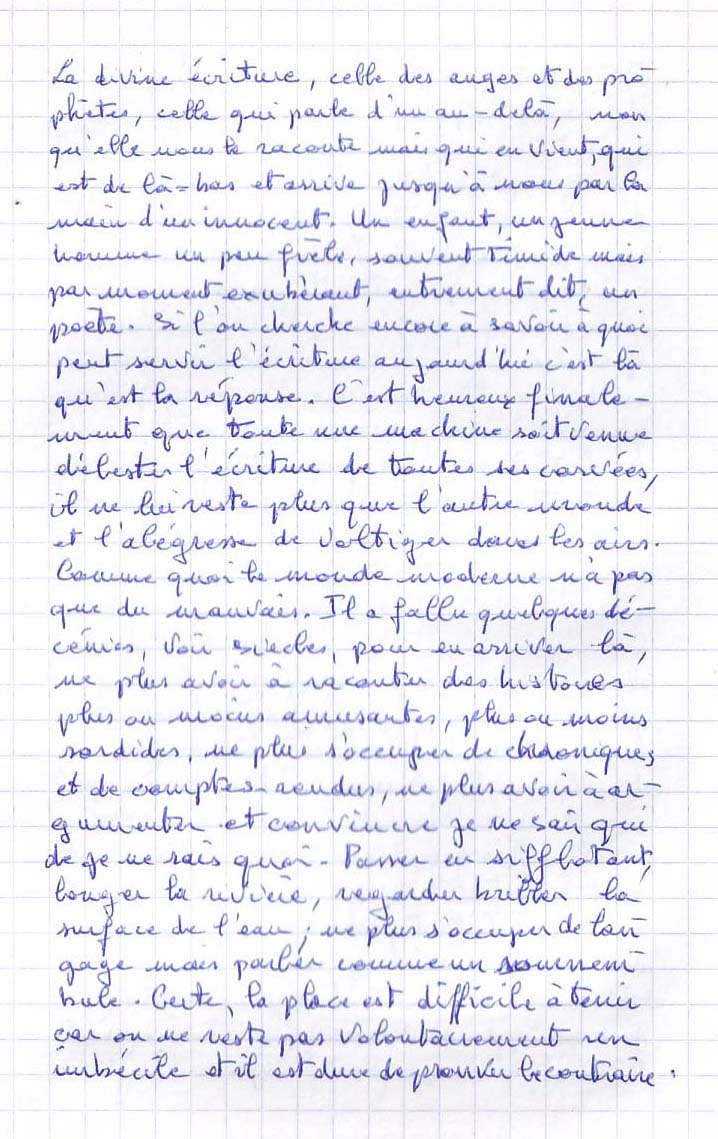 La divine écriture, celle des anges et des pro-
phètes, celle qui parle d'un au-delà, non
qu'elle nous le raconte mais qui en vient, qui
est de là-bas et arrive jusqu'à nous par la
main d'un innocent. Un enfant, un jeune
homme un peu frêle, souvent timide mais
par moment exubérant, autrement dit, un
poète. Si l'on cherche encore à savoir à quoi
peut servir l'écriture aujourd'hui c'est là
qu'est la réponse. C'est heureux finale-
ment que toute une machine soit venue
délester l'écriture de toutes ses corvées,
il ne lui reste plus que l'autre monde
et l'alégresse de voltiger dans les airs.
Comme quoi le monde moderne n'a pas
que du mauvais. Il a fallu quelques dé-
cénies, voir siècles, pour en arriver là,
ne plus avoir à raconter des histoires
plus ou moins amusantes, plus ou moins
sordides, ne plus s'occuper de chroniques
et de comptes-rendus, ne plus avoir à ar-
gumenter et convincre je ne sais qui
de je ne sais quoi. Passer en sifflotant,
longer la rivière, regarder briller la
surface de l'eau, ne plus s'occuper de lan-
gage mais parler comme un somnem-
bule. Certe, la place est difficile à tenir
car on ne reste pas volontairement un
imbécile et il est dure de prouver le contraire.